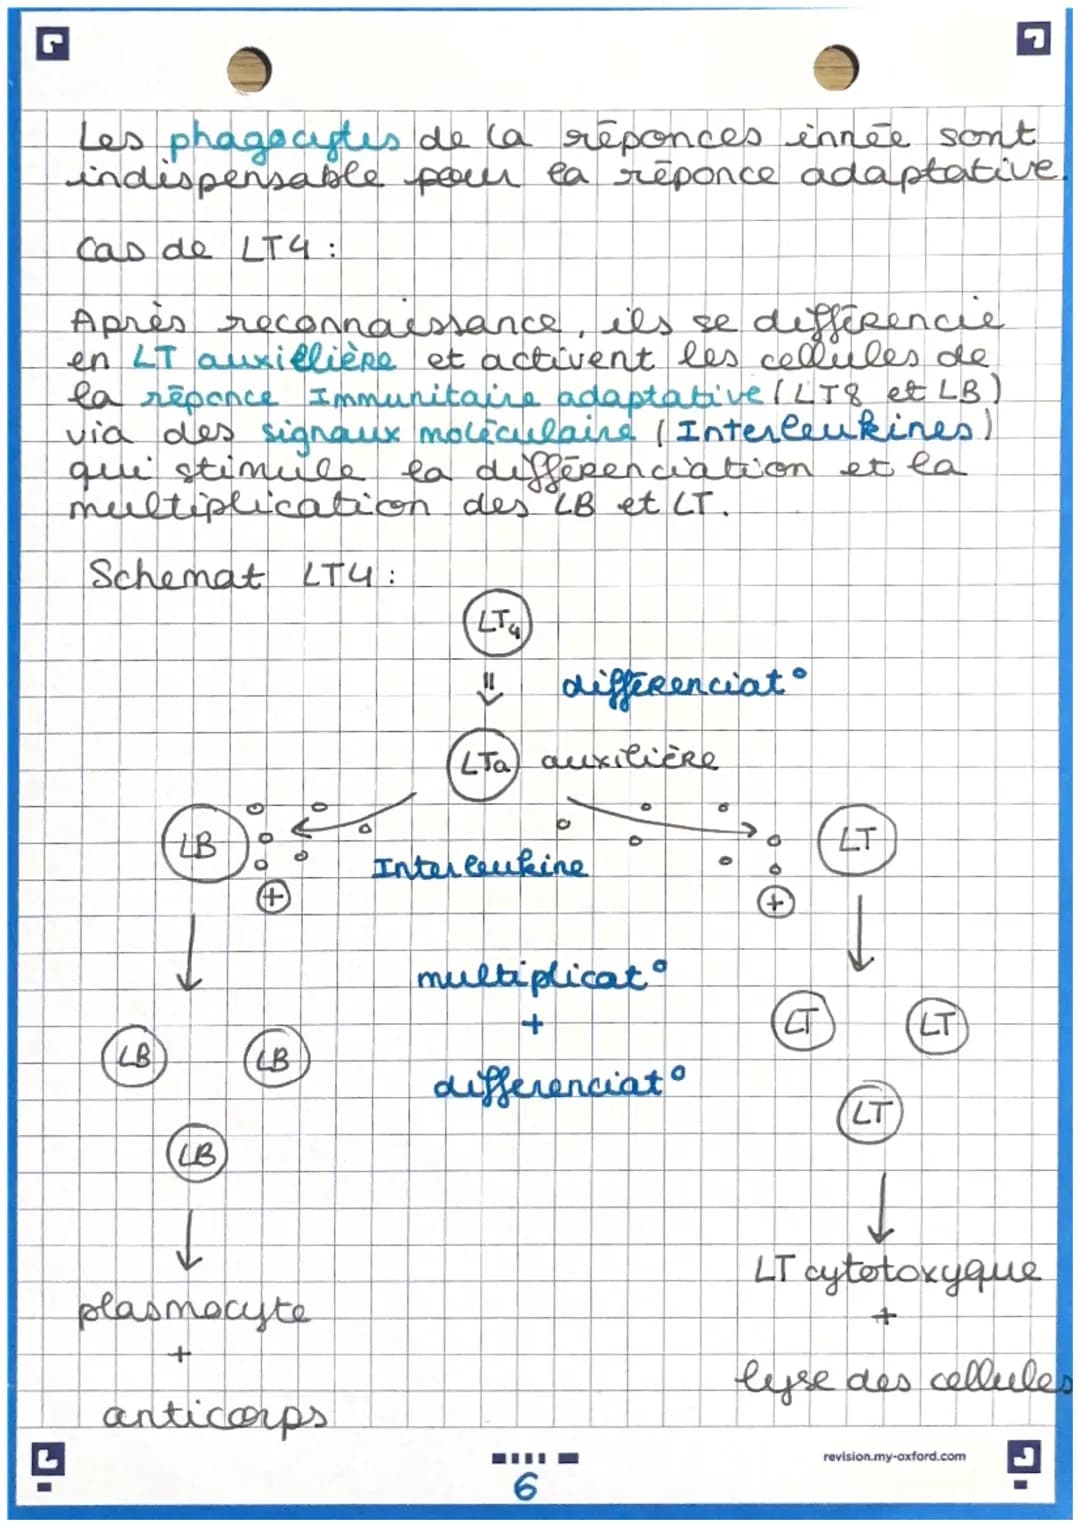 Les phagocytes de la réponces innée sont
indispensable pour la réponce adaptative.
Cas de LT4 :
Après reconnaissance, ils se différencie
en LT auxiélière et activent les cellules de
la réponce Immunitaire adaptative (LT8 et LB)
via des signaux moléculaire (Interleukines)
qui stimule la différenciation et la
multiplication des LB et LT.
Schemat LT4 :
LT4
différenciat°
LTa auxilière
LB
LT
Interleukine
+
+
multiplicat°
+
differenciat°
LB
LB
LB
LT
LT
LT
plasmocyte
+
anticorps
LT cytotoxyque
+
lyse des cellules
revision.my-oxford.com
6